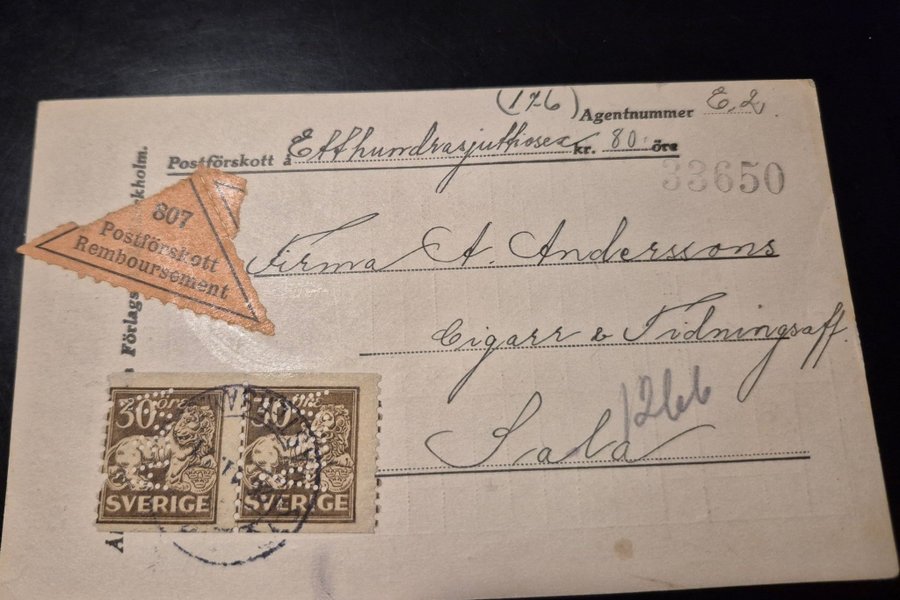 (176) Agentnummer E. 2.
Postförskott å Etthundrasjuttiosex kr. 80 öre
33650
807
Postförskott
Remboursement
Firma A. Anderssons
Cigarr & Tidningsaff.
1266
Sala
30 öre
SVERIGE
30 öre
SVERIGE
Förlags